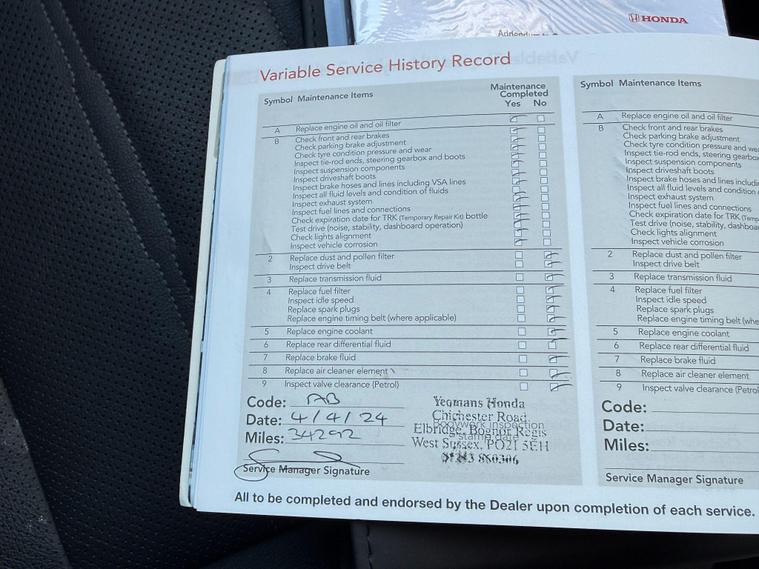 HONDA
Variable Service History Record
Symbol Maintenance Items
Maintenance
Completed
Yes No
A Replace engine oil and oil filter
B Check front and rear brakes
Check parking brake adjustment
Check tyre condition pressure and wear
Inspect tie-rod ends, steering gearbox and boots
Inspect suspension components
Inspect driveshaft boots
Inspect brake hoses and lines including VSA lines
Inspect all fluid levels and condition of fluids
Inspect exhaust system
Inspect fuel lines and connections
Check expiration date for TRK (Temporary Repair Kit) bottle
Test drive (noise, stability, dashboard operation)
Check lights alignment
Inspect vehicle corrosion
2 Replace dust and pollen filter
Inspect drive belt
3 Replace transmission fluid
4 Replace fuel filter
Inspect idle speed
Replace spark plugs
Replace engine timing belt (where applicable)
5 Replace engine coolant
6 Replace rear differential fluid
7 Replace brake fluid
8 Replace air cleaner element
9 Inspect valve clearance (Petrol)
Code: AB
Date: 4/4/24
Miles: 34292
Service Manager Signature
Yeomans Honda
Chichester Road,
Elbridge, Bognor Regis
West Sussex, PO21 5EH
Symbol Maintenance Items
A Replace engine oil and oil filter
B Check front and rear brakes
Check parking brake adjustment
Check tyre condition pressure and
Inspect tie-rod ends, steering
Inspect suspension components
Inspect driveshaft boots
Inspect brake hoses and lines
Inspect all fluid levels and condition
Inspect exhaust system
Inspect fuel lines and connections
Check expiration date for TRK
Test drive (noise, stability,
Check lights alignment
Inspect vehicle corrosion
2 Replace dust and pollen filter
Inspect drive belt
3 Replace transmission fluid
4 Replace fuel filter
Inspect idle speed
Replace spark plugs
Replace engine timing belt
5 Replace engine coolant
6 Replace rear differential fluid
7 Replace brake fluid
8 Replace air cleaner element
9 Inspect valve clearance
Code:
Date:
Miles:
Service Manager Signature
All to be completed and endorsed by the Dealer upon completion of each service.